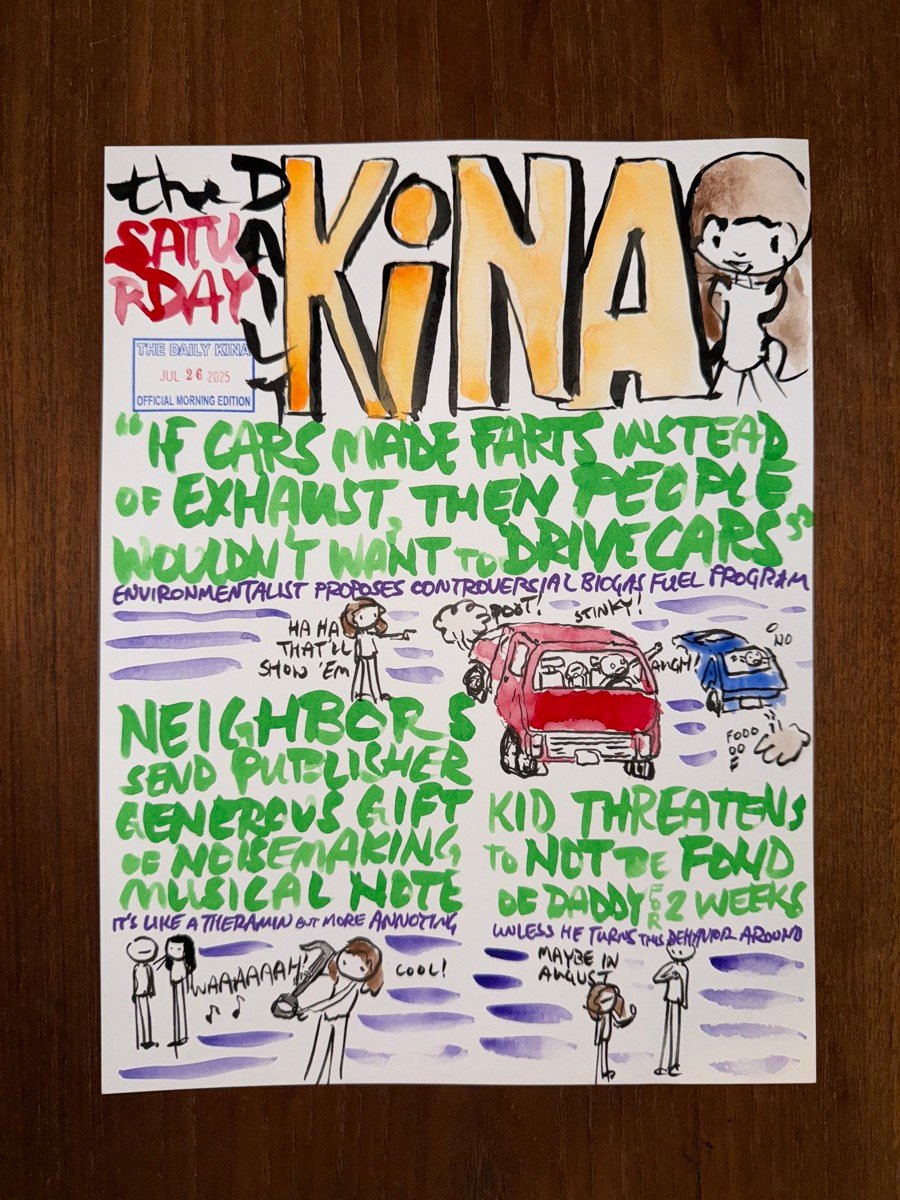 the DAILY
SATU
RDAY
KiNA
THE DAILY KINA
JUL 26 2025
OFFICIAL MORNING EDITION
"IF CARS MADE FARTS INSTEAD
OF EXHAUST, THEN PEOPLE
WOULDN'T WANT TO DRIVE CARS"
ENVIRONMENTALIST PROPOSES CONTROVERSIAL BIOGAS FUEL PROGRAM
HA HA
THAT'LL
SHOW 'EM
POOT!
STINKY!
AUGH!
NO
NEIGHBORS
SEND PUBLISHER
GENEROUS GIFT
OF NOISEMAKING
MUSICAL NOTE
IT'S LIKE A THERAMIN BUT MORE ANNOYING
WAAAAAAH!
COOL!
KID THREATENS
TO NOT BE FOND
OF DADDY FOR 2 WEEKS
UNLESS HE TURNS THIS BEHAVIOR AROUND
MAYBE IN
AUGUST